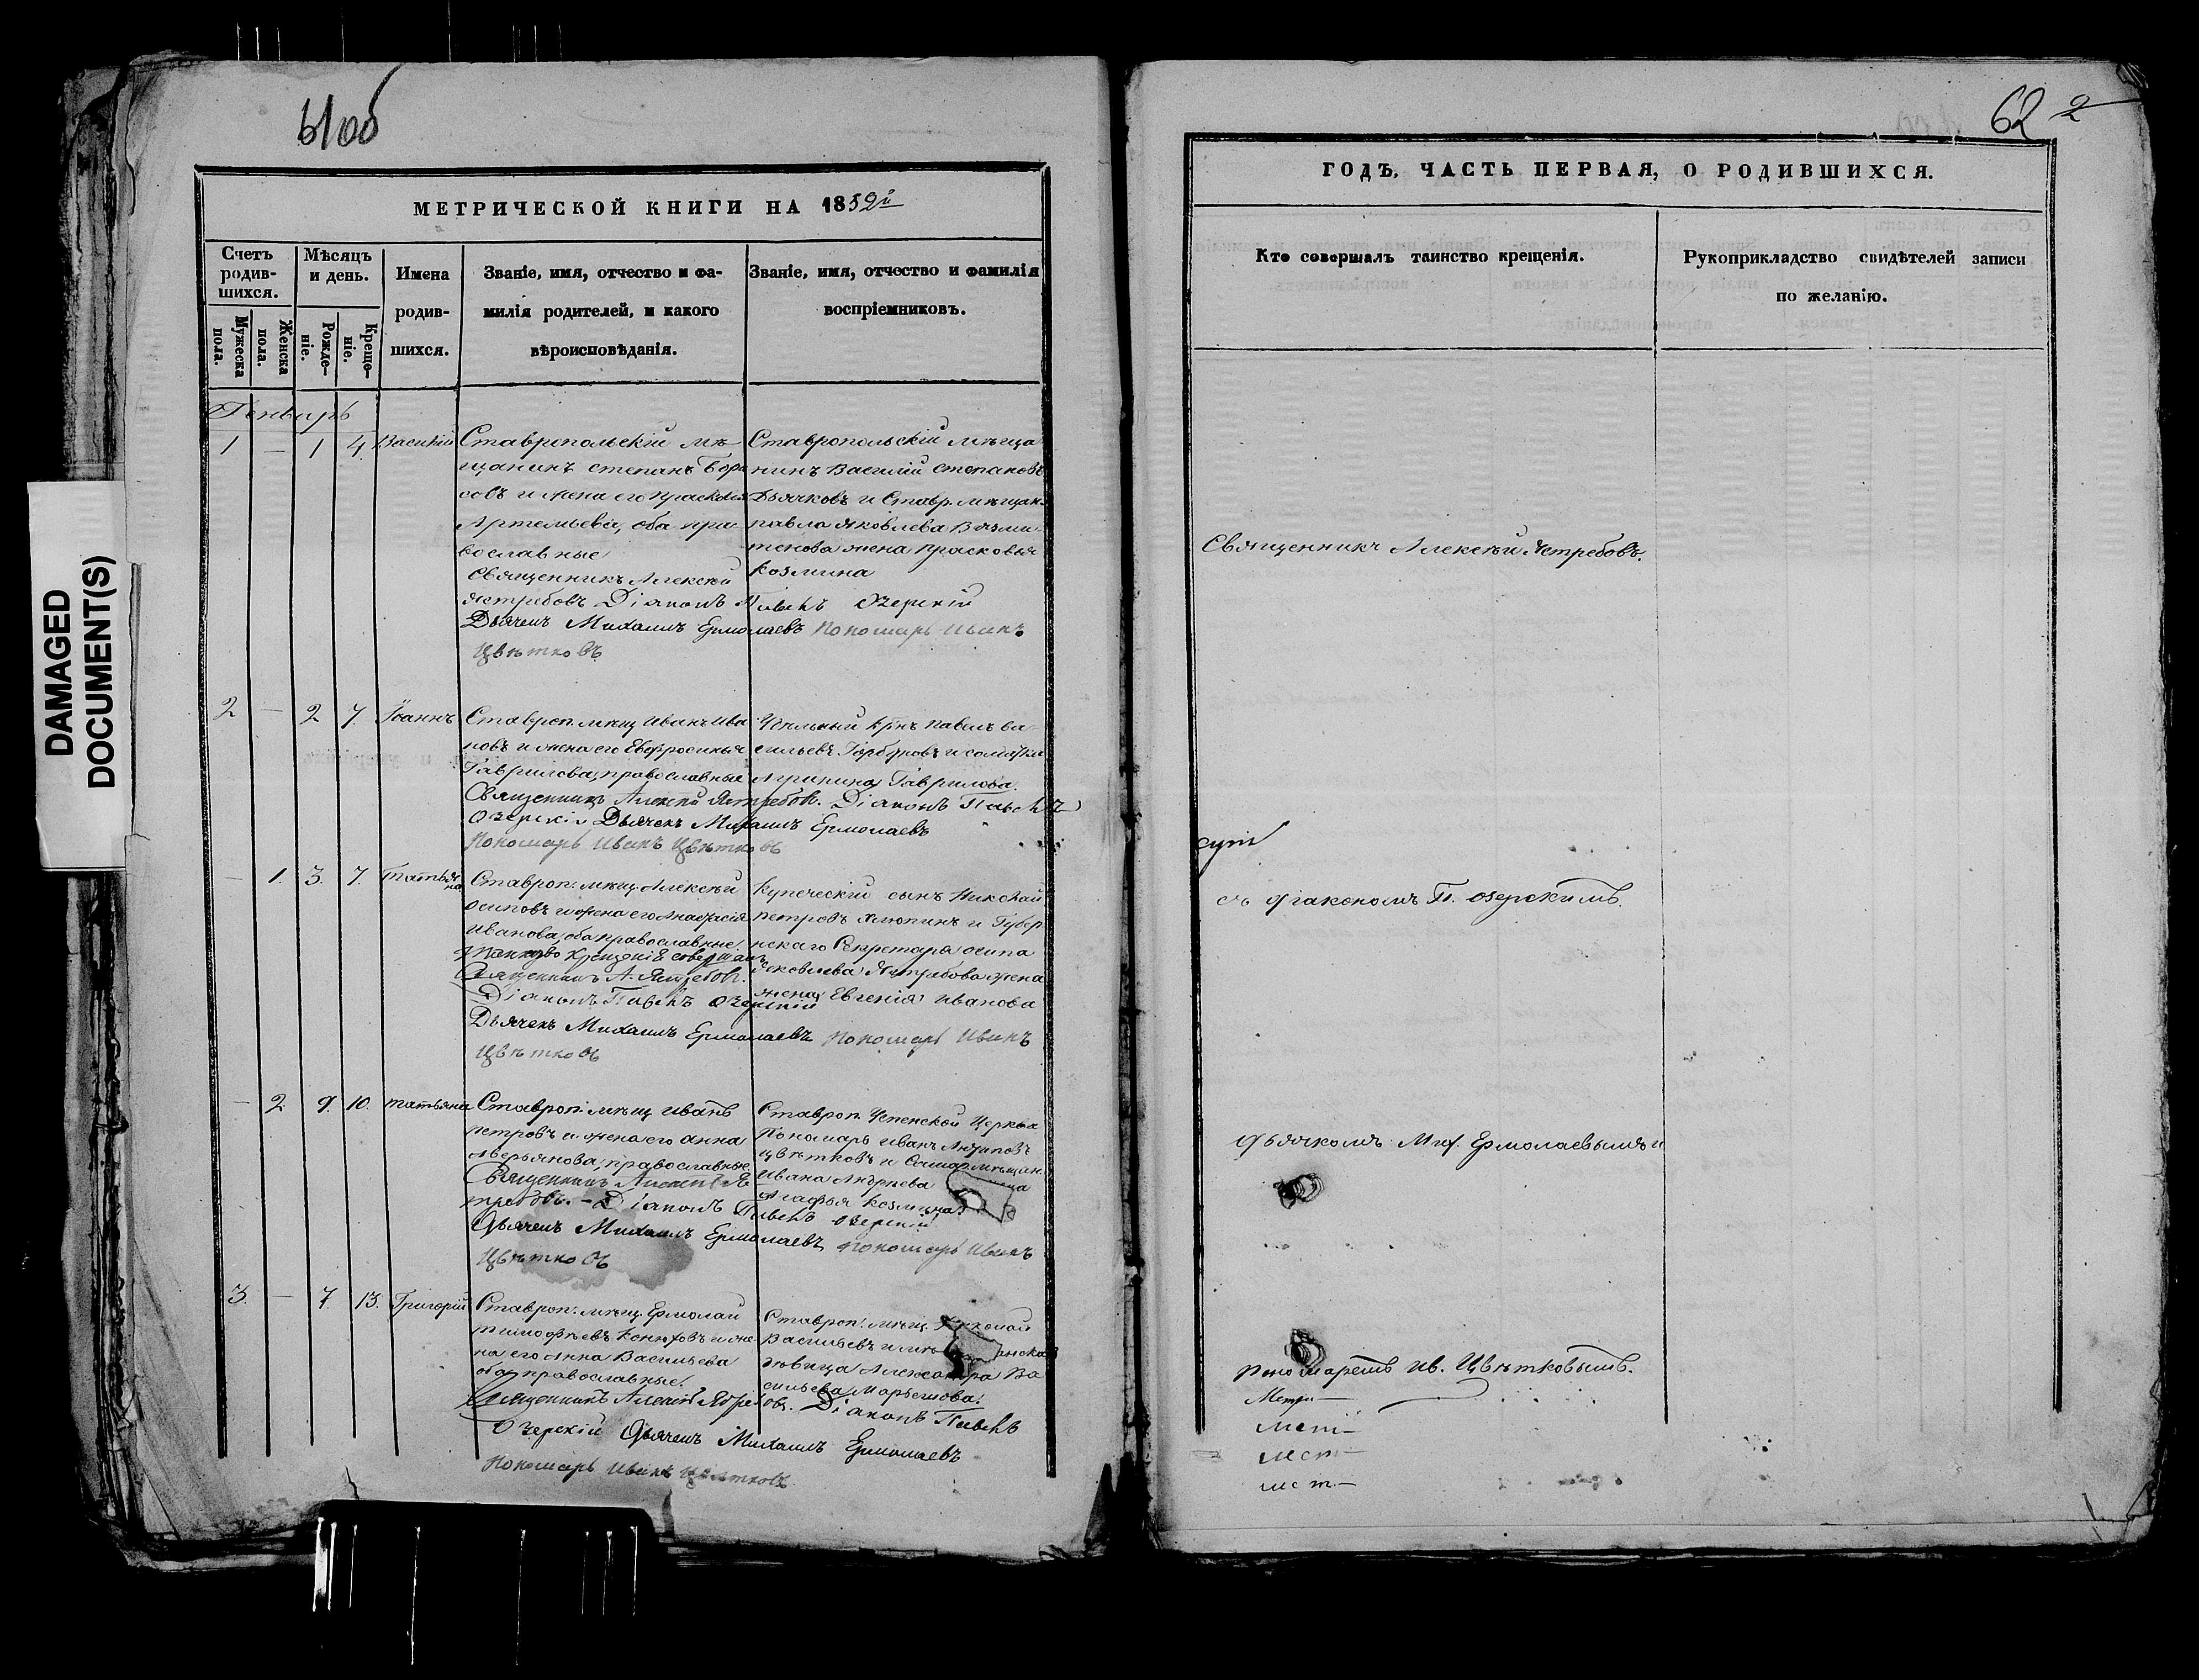 61об
МЕТРИЧЕСКОЙ КНИГИ НА 1852й
Счетъ родив- шихся.
Мѣсяцъ и день.
Имена родив- шихся.
Званіе, имя, отчество и фа- милія родителей, и какого вѣроисповѣданія.
Званіе, имя, отчество и фамилія воспріемниковъ.
Мужеска пола.
Женска пола.
Рожде- ніе.
Креще- ніе.
Генварь
1 — 1 4 Василій
Ставропольскій мѣ-
щанинъ степанъ Бори
совъ и жена его Прасковья
Артемьева, оба пра-
вославные
Ставропольскій мѣща
нинъ Василій степановъ
Дьячковъ и Ставр. мѣщан.
павла яковлева
жена прасковья
Козмина
Священникъ Алексѣй
Ястребовъ Діаконъ Павелъ Озерскій
Дьячекъ Михаилъ Ермолаевъ Пономарь Иванъ
Цвѣтковъ
2 — 2 7 Іоаннъ
Ставроп. мѣщ. Иванъ Ива
новъ и жена его Евфросинья
Гаврилова, православные
Удѣльный крнъ Павелъ Ва
сильевъ и солдатка
Гаврилова.
Священникъ Алексѣй Ястребовъ. Діаконъ Павелъ
Озерскій Дьячекъ Михаилъ Ермолаевъ
Пономарь Иванъ Цвѣтковъ
— 1. 3. 7. Татьяна
Ставроп. мѣщ. Алексѣй
Осиповъ и жена его Анастасія
Иванова, оба православные.
Купеческій сынъ Николай
петровъ Хлюпинъ и Губер
нскаго Секретаря осипа
яковлева Ястребова жена
жена Евгенія Иванова
Таинство Крещенія совершалъ
Священникъ А. Ястребовъ.
Діаконъ Павелъ Озерскій
Дьячекъ Михаилъ Ермолаевъ Пономарь Иванъ
Цвѣтковъ
— 2 9. 10. татьяна
Ставроп. мѣщ. Иванъ
петровъ и жена его Анна
Аверьянова, православные
Ставроп. Успенской Церкви
Пономарь Иванъ
Цвѣтковъ и Самар. мѣщан.
Ивана
Агафья Козмина.
Священникъ Алексѣй Яс
требовъ. — Діаконъ Павелъ Озерскій
Дьячекъ Михаилъ Ермолаевъ Пономарь Иванъ
Цвѣтковъ
3. — 7. 13. Григорій
Ставроп. мѣщ. Ермолай
тимофѣевъ Конюховъ и же-
на его Анна Васильева
оба православные.
Ставроп. мѣщ. Николай
Васильевъ и
дѣвица Александра Ва
сильева
Священникъ Алексѣй Ястребовъ. Діаконъ Павелъ
Озерскій Дьячекъ Михаилъ Ермолаевъ
Пономарь Иванъ Цвѣтковъ
62 2
ГОДЪ, ЧАСТЬ ПЕРВАЯ, О РОДИВШИХСЯ.
Кто совершалъ таинство крещенія.
Рукоприкладство свидѣтелей записи по желанію.
Священникъ Алексѣй Ястребовъ.
съ діакономъ П. озерскимъ.
дьячкомъ Мих. Ермолаевымъ и
пономаремъ Ив. Цвѣтковымъ.
DAMAGED
DOCUMENT(S)